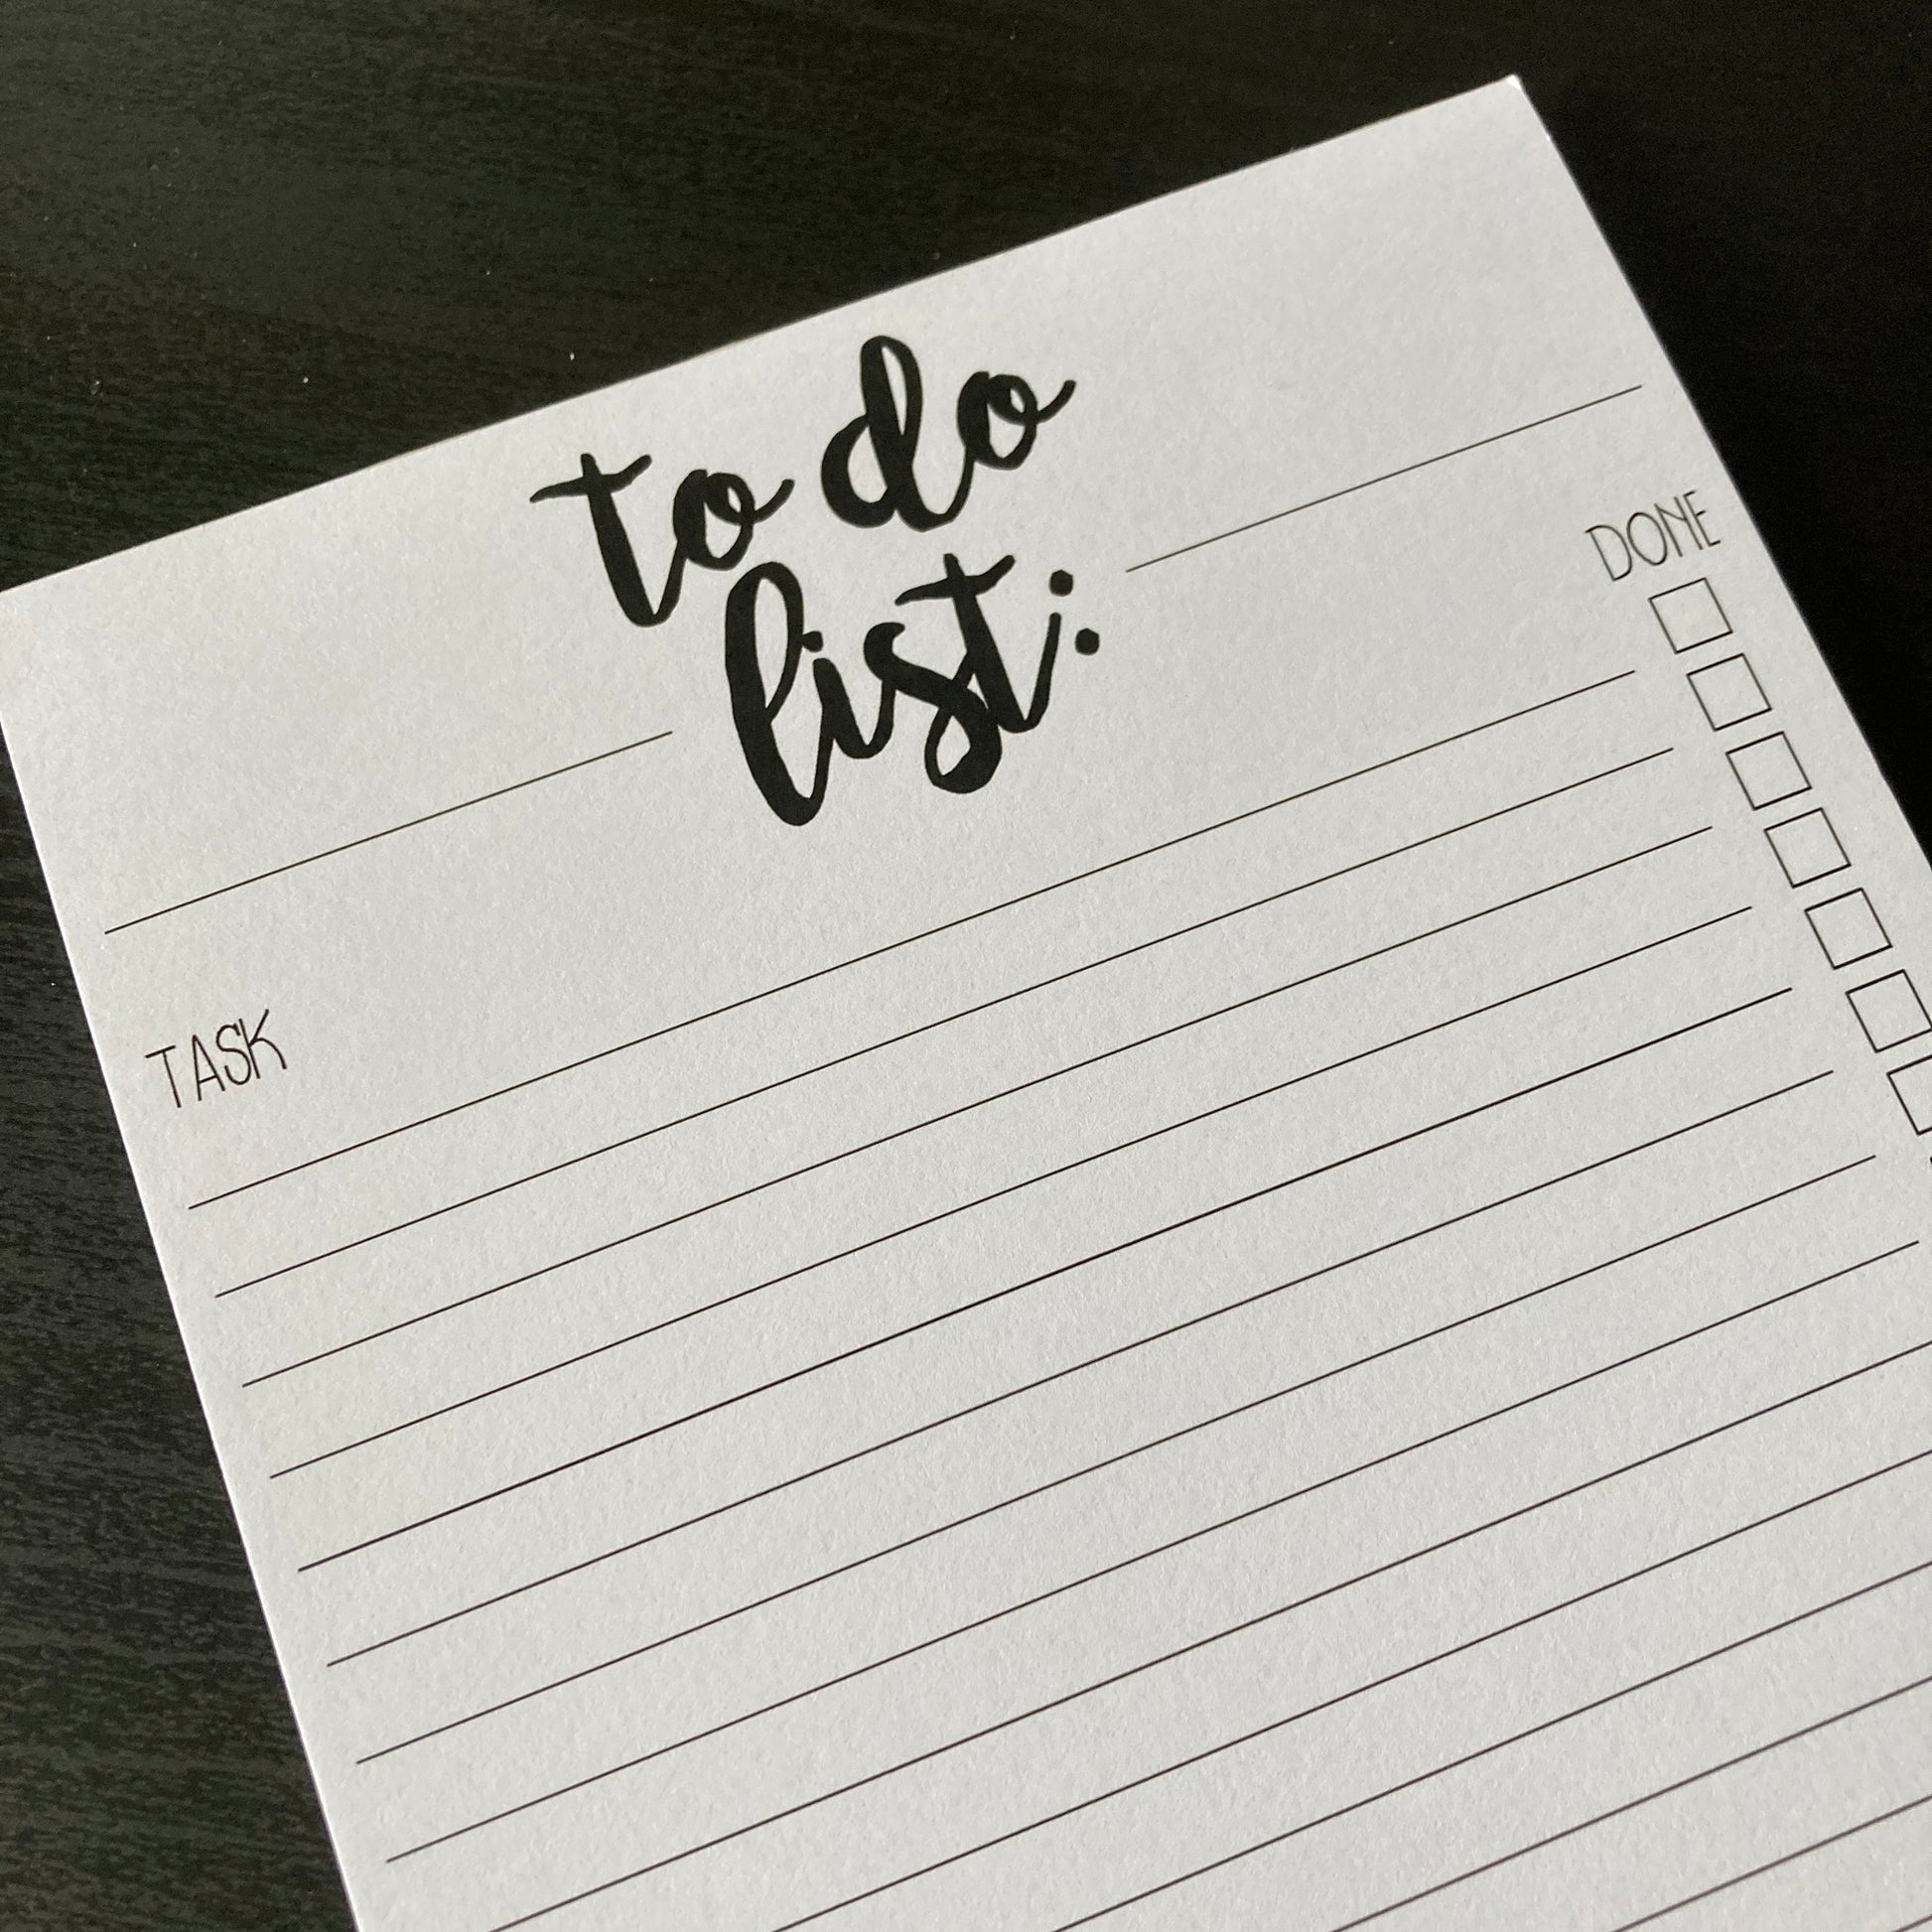 to do
list:
DONE
TASK